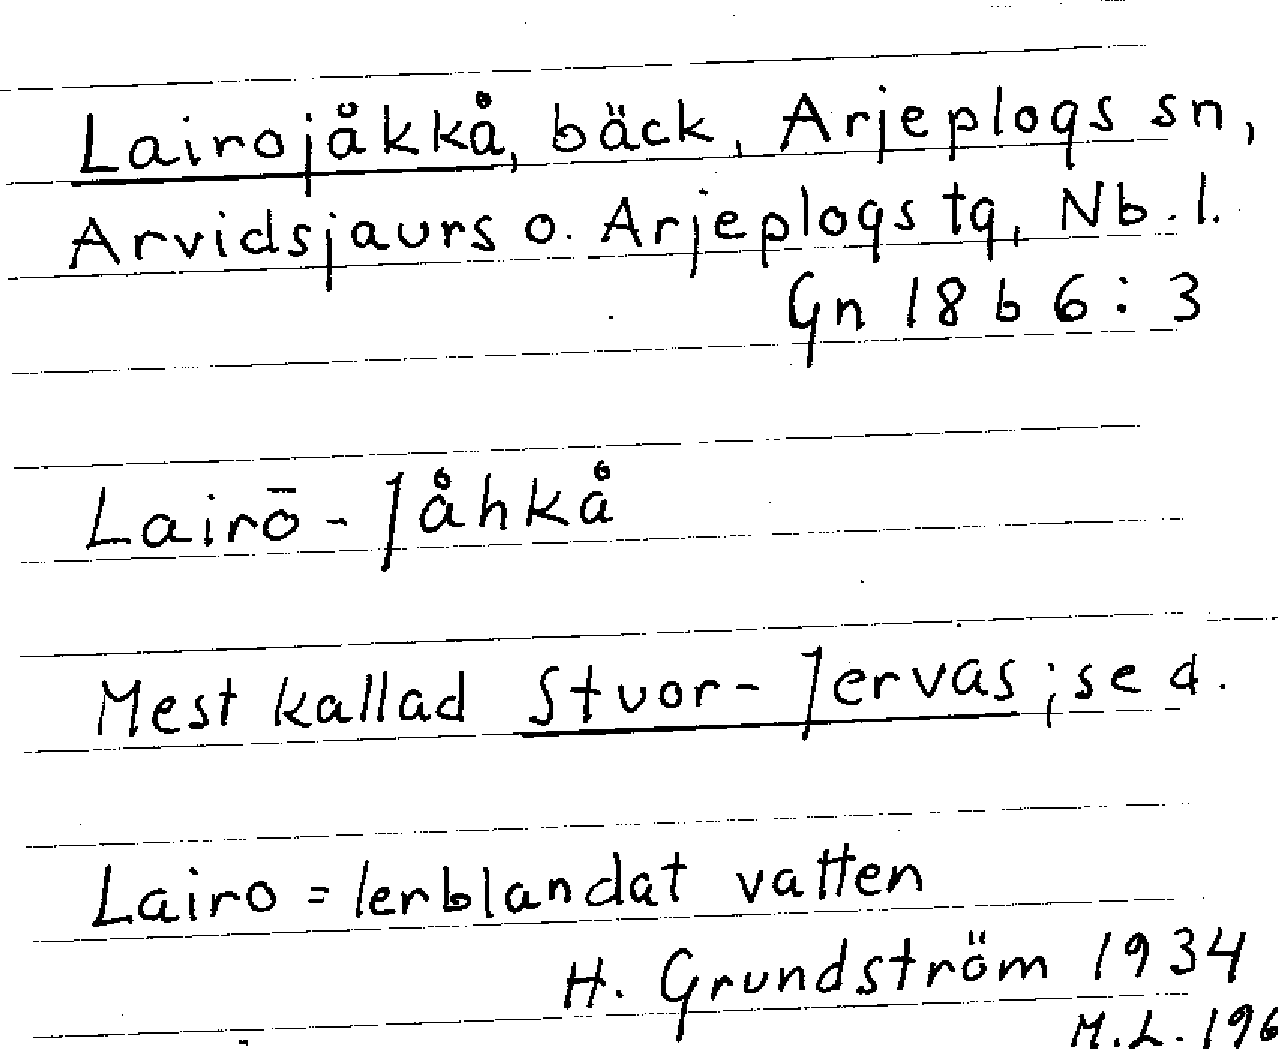 Lairojåkkå, bäck, Arjeplogs sn,
Arvidsjaurs o. Arjeplogs tg, Nb. l.
Gn 18 b 6 : 3
Lairō - Jåhkå
Mest kallad Stuor - Jervas ; se d.
Lairo = lerblandat vatten
H. Grundström 1934
M.L. 196